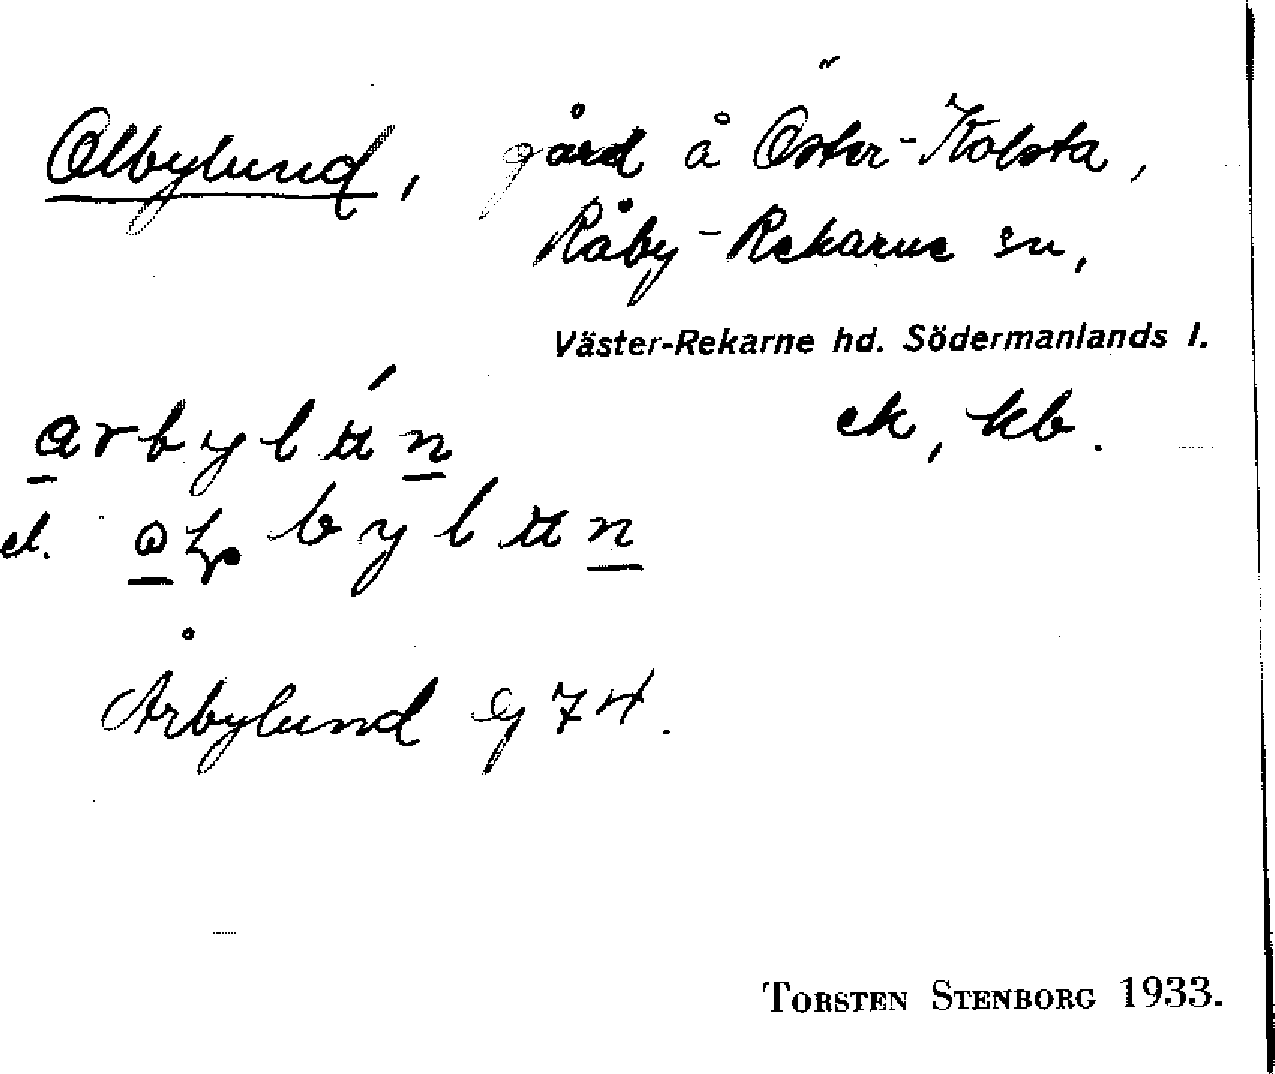 Olbylund, gård å Öster-Kolsta,
Råby-Rekarne sn,
Väster-Rekarne hd. Södermanlands l.
ek, kb.
arbylun
el. bylun
Årbylund Gj 74.
TORSTEN STENBORG 1933.